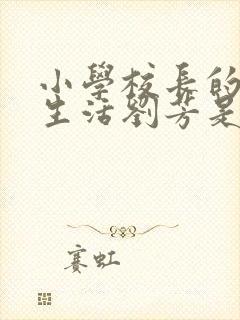 小學校長的
生活劉芳是
賽虹